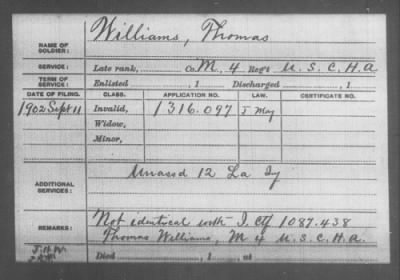 NAME OF SOLDIER: Williams, Thomas
SERVICE: Late rank, Co. M, 4 Reg't U. S. C. H. A
TERM OF SERVICE: Enlisted , 1 Discharged , 1
DATE OF FILING. CLASS. APPLICATION NO. LAW. CERTIFICATE NO.
1902 Sept 11 Invalid, 1316.097 J May
Widow,
Minor,
ADDITIONAL SERVICES: Unasgd 12 La Iy
REMARKS: Not identical with I. Ctf 1087.438
Thomas Williams, M 4 U. S. C. H. A.
Died , 1 , at